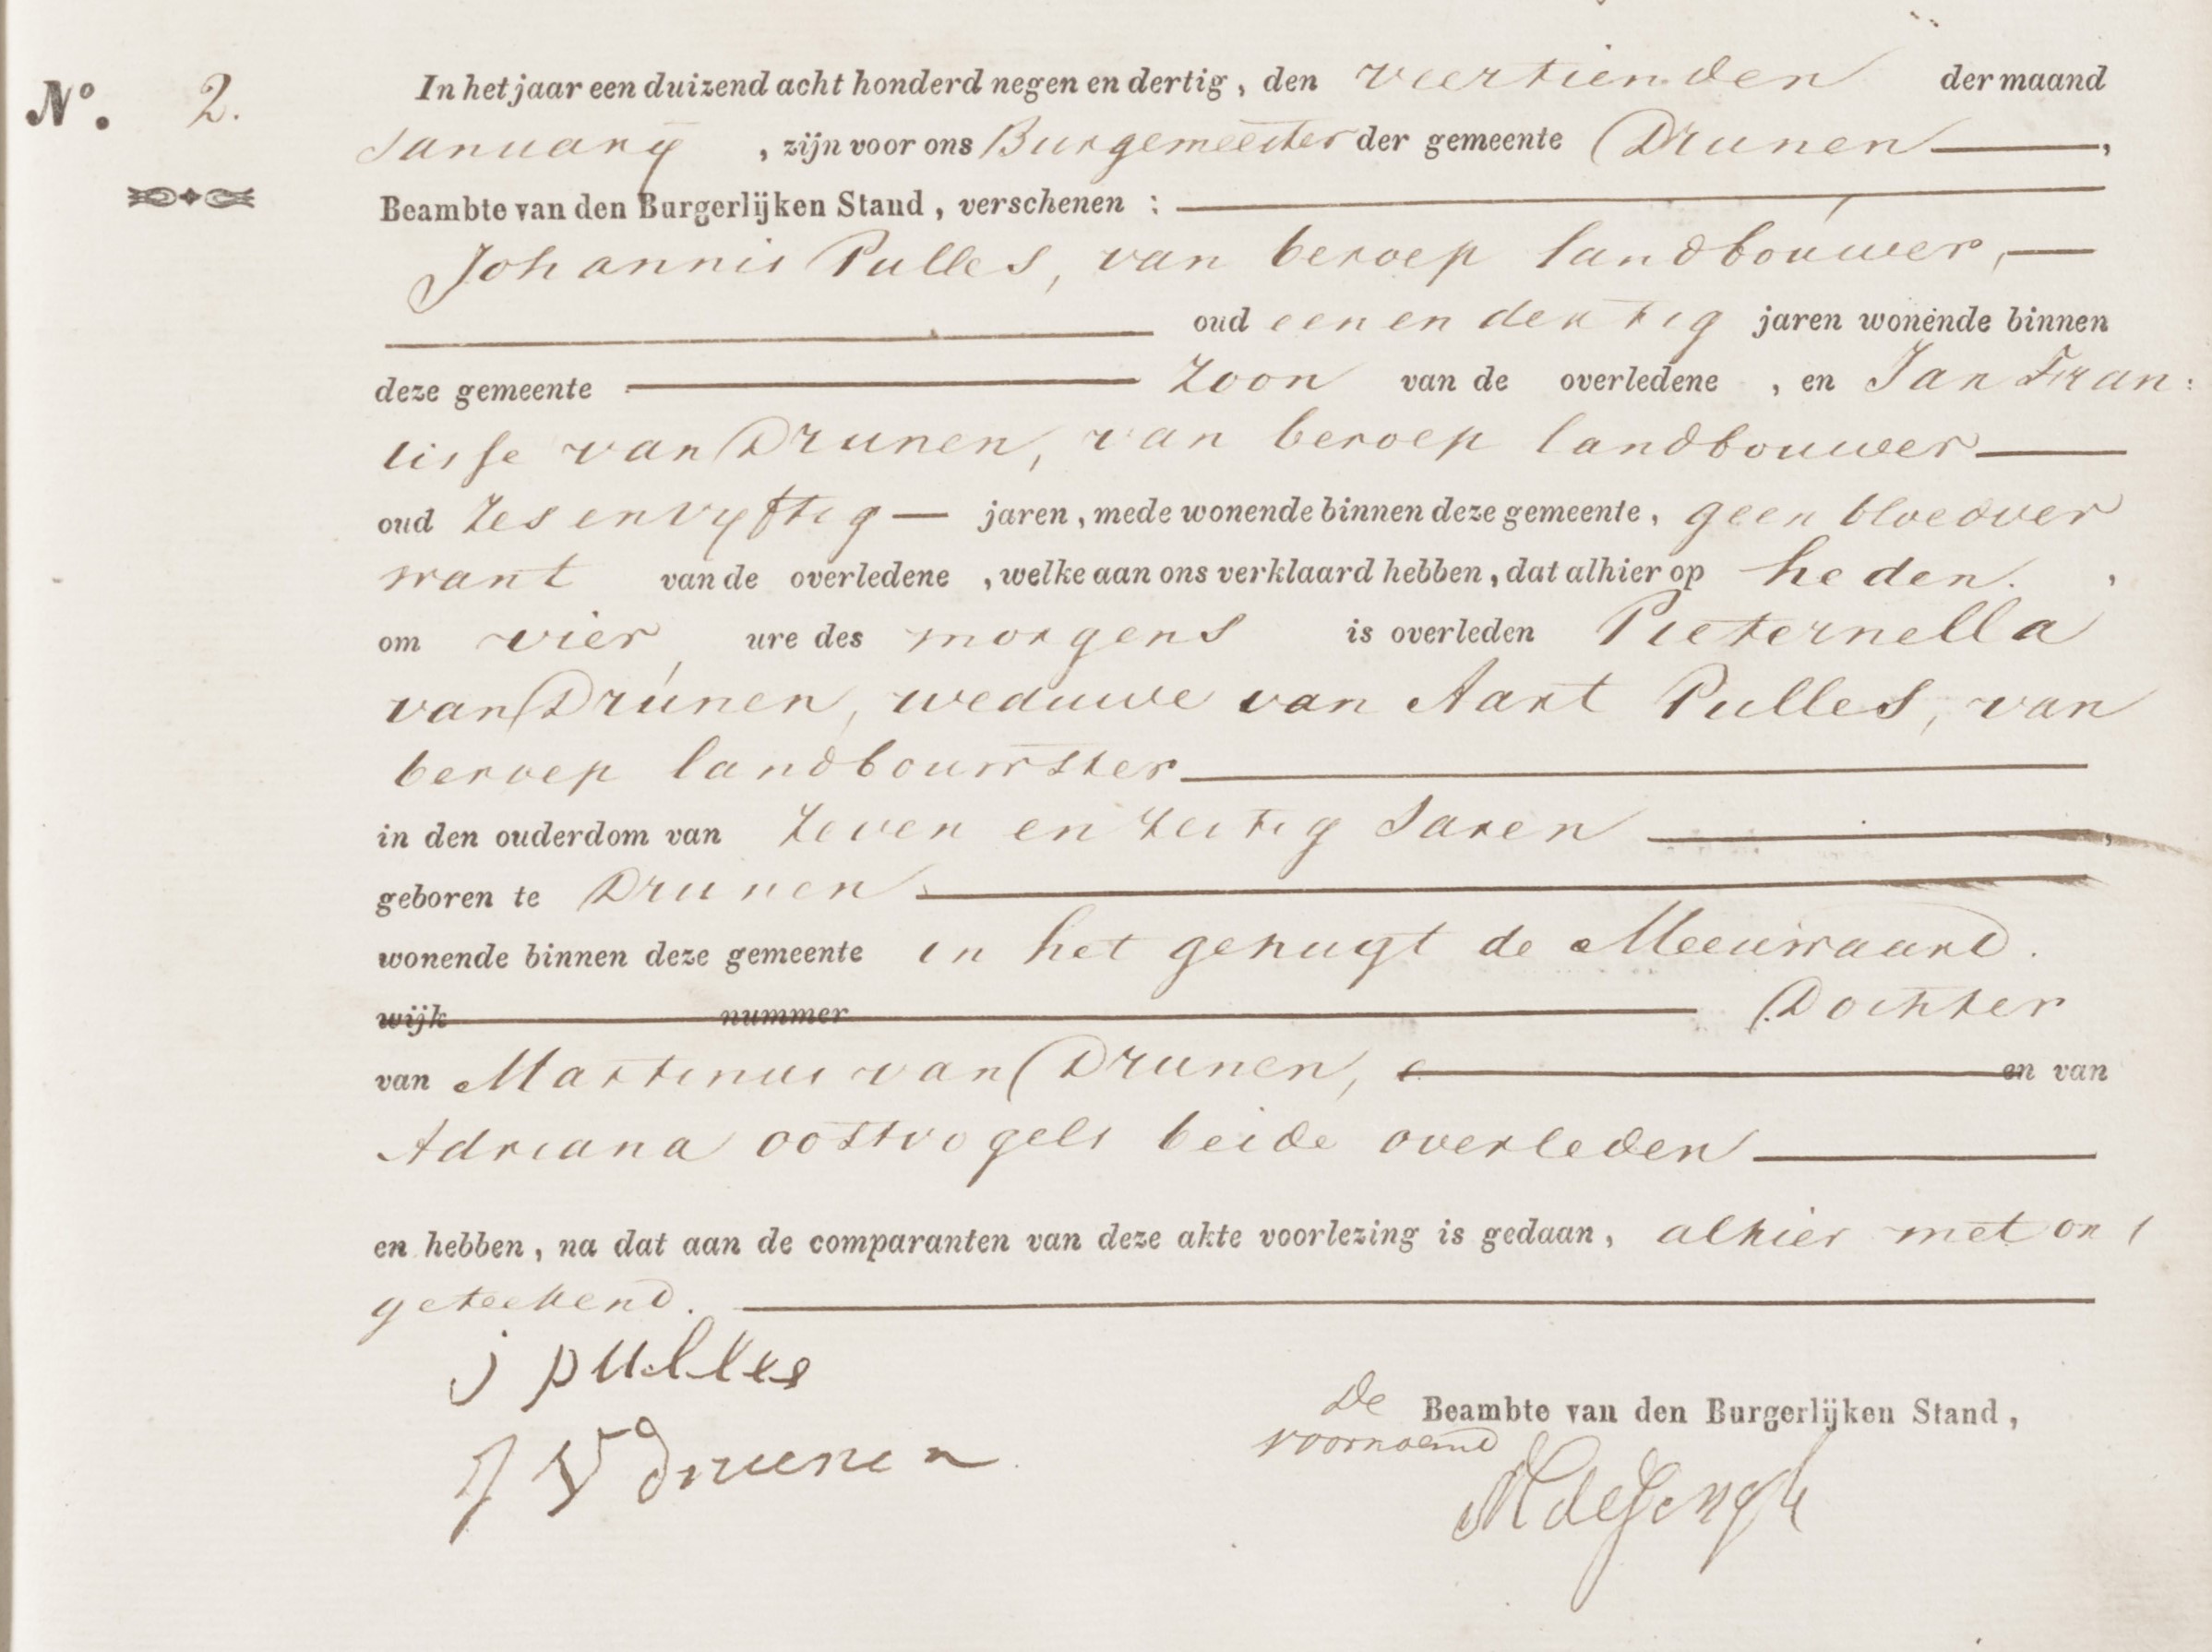 N.º 2. In het jaar een duizend acht honderd negen en dertig, den veertienden der maand
January, zijn voor ons Burgemeester der gemeente Drunen,
Beambte van den Burgerlijken Stand, verschenen :
Johannis Pulles, van beroep landbouwer,
oud een en dertig jaren wonende binnen
deze gemeente Zoon van de overledene , en Jan Fran:
cisse van Drunen, van beroep landbouwer
oud Zes en vyftig jaren, mede wonende binnen deze gemeente, geen bloedver
want van de overledene , welke aan ons verklaard hebben, dat alhier op heden. ,
om vier, ure des morgens is overleden Pieternella
van Drunen, weduwe van Aart Pulles, van
beroep landbouwster
in den ouderdom van Zeven en Zestig Jaren ,
geboren te Drunen
wonende binnen deze gemeente in het gehugt de Meeuwaard.
wijk nummer Dochter
van Martinus van Drunen, en van
Adriana oostvogels beide overleden
en hebben, na dat aan de comparanten van deze akte voorlezing is gedaan, alhier met ons
geteekend.
j pulles
J V drunen
De Beambte van den Burgerlijken Stand,
voornoemd